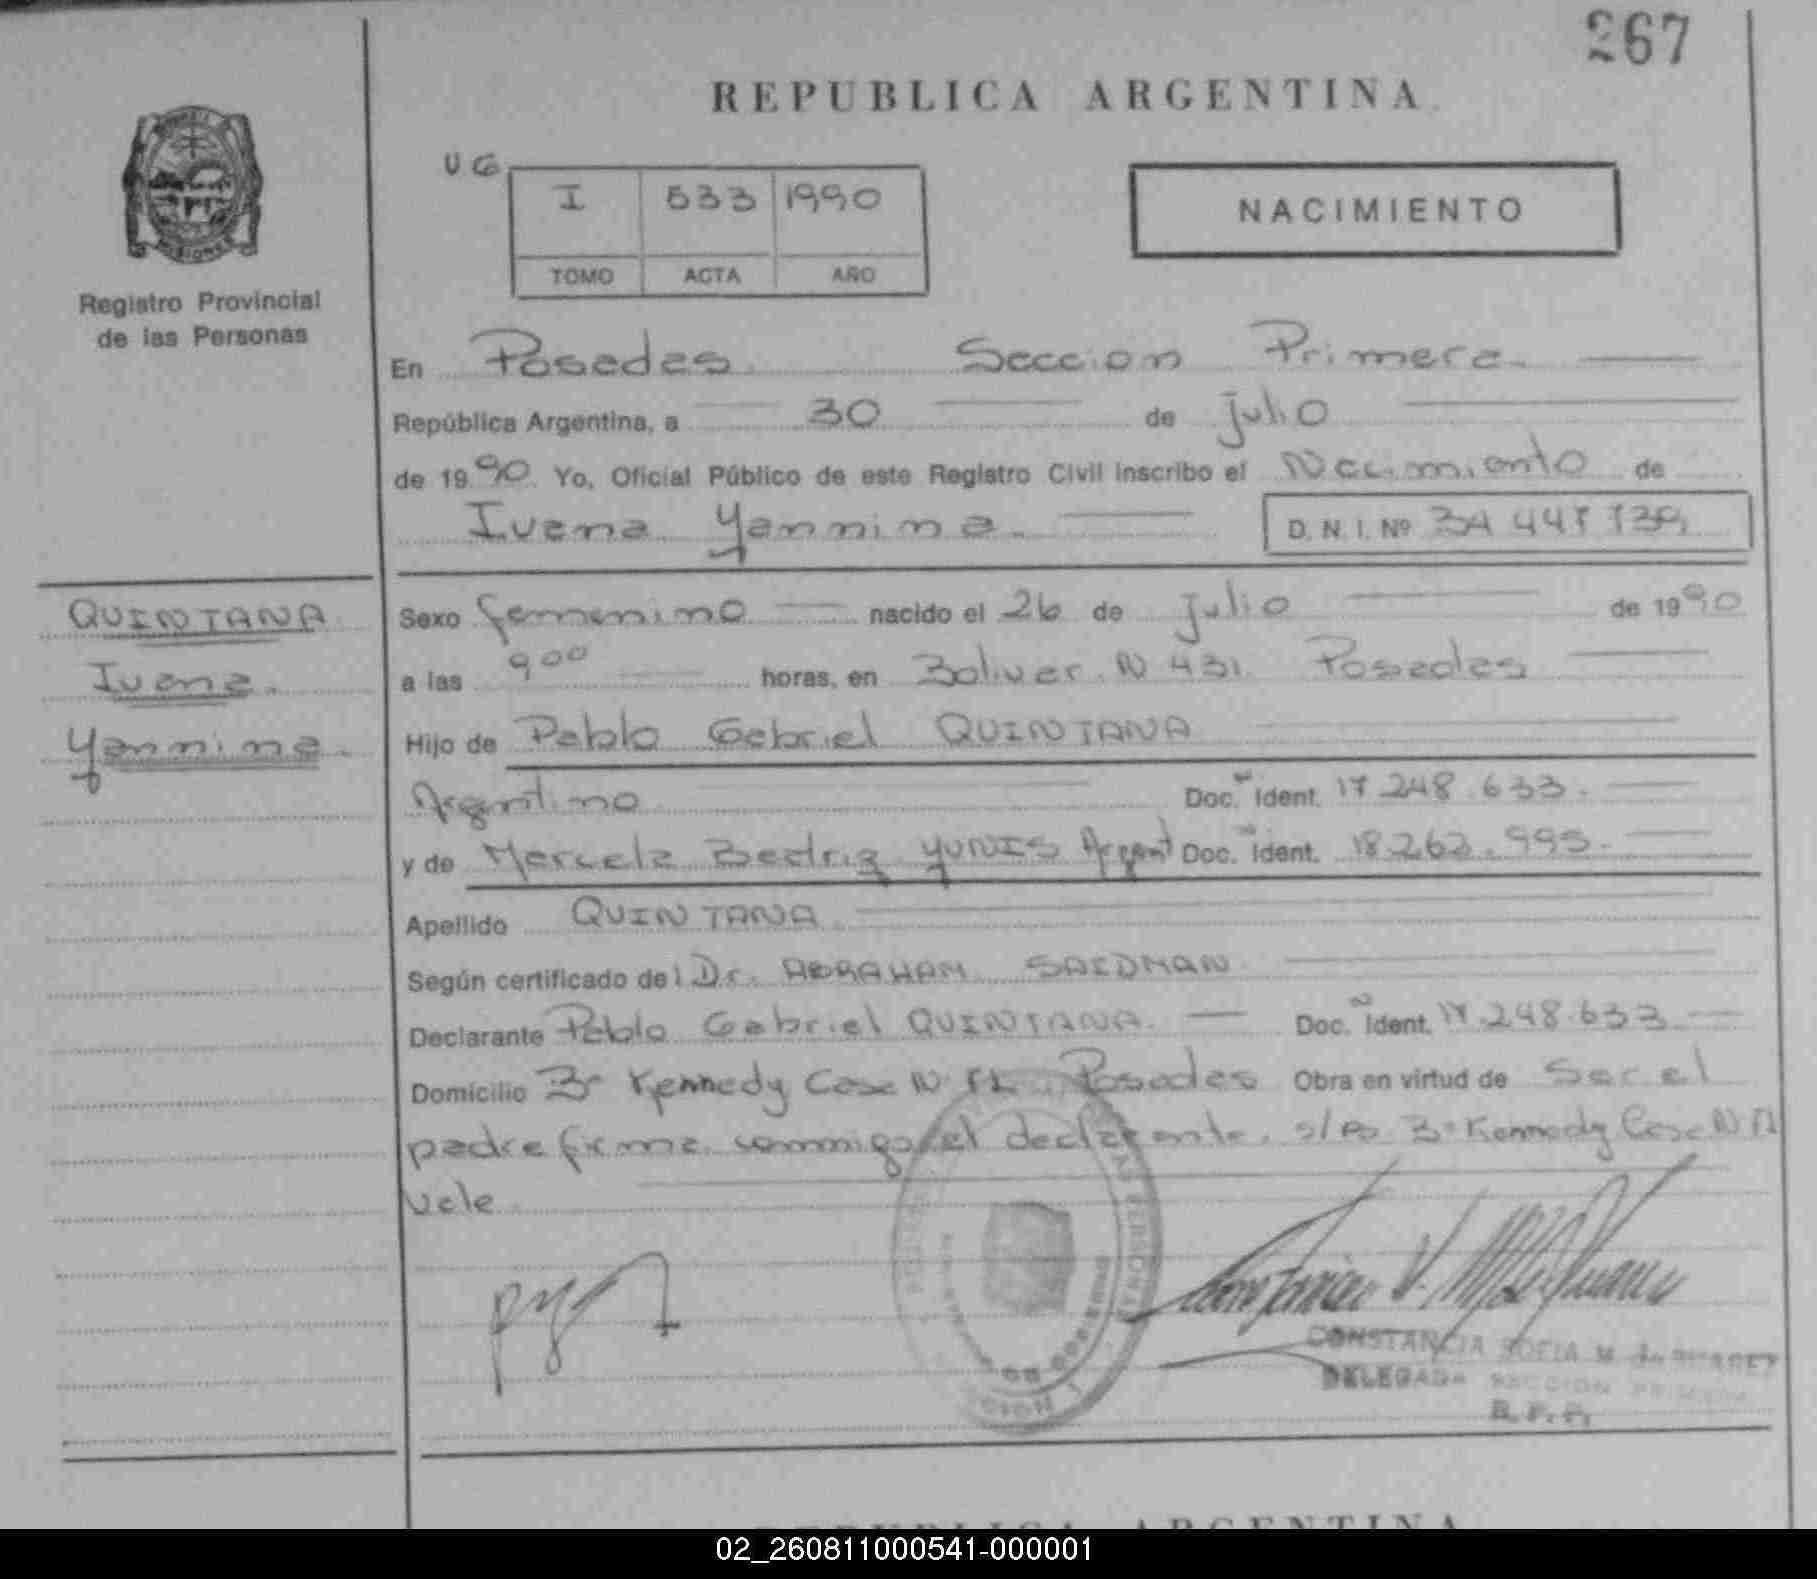 267
REPUBLICA ARGENTINA
UG
I 533 1990
TOMO ACTA AÑO
NACIMIENTO
Registro Provincial
de las Personas
En Posadas Seccion Primera
República Argentina, a 30 de julio
de 1990 Yo, Oficial Público de este Registro Civil inscribo el Nacimiento de
Ivana Yannina D. N. I. Nº
QUINTANA
Ivana
Yannina
Sexo femenino nacido el 26 de julio de 1990
a las 9 00 horas, en Bolivar N 431 Posadas
Hijo de Pablo Gabriel QUINTANA
Argentino Doc. Ident. 17.248.633
y de Marcela Beatriz YUNIS Argent Doc. Ident.
Apellido QUINTANA
Según certificado del Dr. ABRAHAM SAIDMAN
Declarante Pablo Gabriel QUINTANA Doc. Ident. 17.248.633
Domicilio Bº Kennedy Casa N Posadas Obra en virtud de Ser el
padre firma conmigo el declarante. Bº Kennedy Casa N
Vale
CONSTANCIA SOFIA M. de SUAREZ
DELEGADA SECCION PRIMERA
R. P. P.
REPUBLICA ARGENTINA
02_260811000541-000001